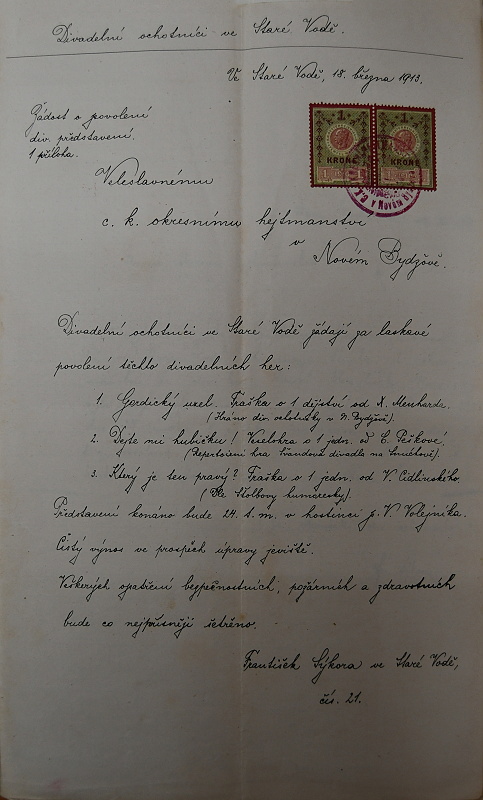 Divadelní ochotníci ve Staré Vodě.
Ve Staré Vodě, 18. března 1913.
Žádost o povolení
div. představení.
1 příloha.
1 1
KRONE KRONE
v Novém
Veleslavnému
c. k. okresnímu hejtmanství
v
Novém Bydžově.
Divadelní ochotníci ve Staré Vodě žádají za laskavé
povolení těchto divadelních her:
1. Gordický uzel. Fraška o 1 dějství od X. Menharda.
(Hráno div. ochotníky v N. Bydžově).
2. Dejte mi hubičku! Veselohra o 1 jedn. od E. Peškové.
(Repertoirní hra Švandova divadla na Smíchově).
3. Který je ten pravý? Fraška o 1 jedn. od V. Cidlinského.
(Dle Štolbovy humoresky).
Představení konáno bude 24. t. m. v hostinci p. V. Volejníka.
Čistý výnos ve prospěch úpravy jeviště.
Veškerých opatření bezpečnostních, požárních a zdravotních
bude co nejpřísněji šetřeno.
František Sýkora ve Staré Vodě,
čís. 21.